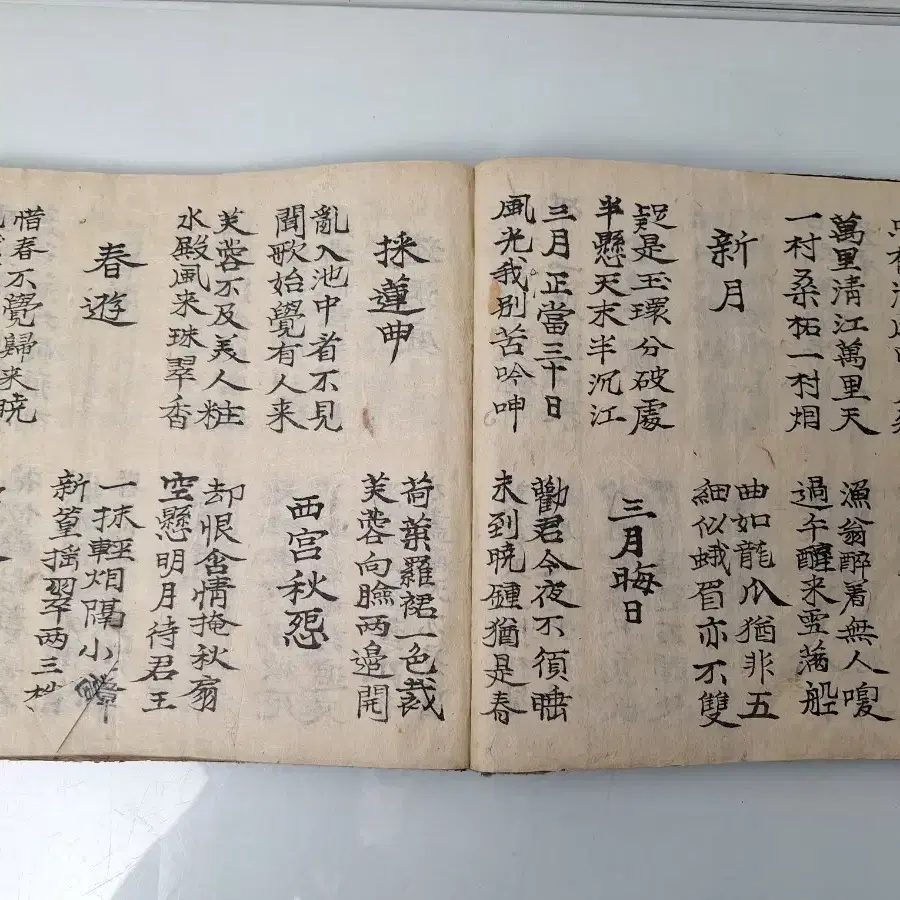 萬里清江萬里天
一村桑柘一村烟
漁翁醉着無人喚
過午醒来雪滿船
新月
曲如龍爪猶非五
細似蛾眉亦不雙
疑是玉環分破處
半懸天末半沉江
三月晦日
三月正當三十日
風光我別苦吟呻
勸君今夜不須睡
未到曉鍾猶是春
採蓮曲
荷葉羅裙一色裁
芙蓉向臉两邊開
亂入池中看不見
聞歌始覺有人来
西宮秋怨
芙蓉不及美人粧
水殿風来珠翠香
却恨含情掩秋扇
空懸明月待君王
春遊
一抹輕烟隔小
新篁搖翠两三
惜春不覺歸来曉